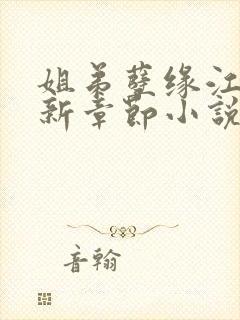 姐弟孽缘江
新章節小說
音翰